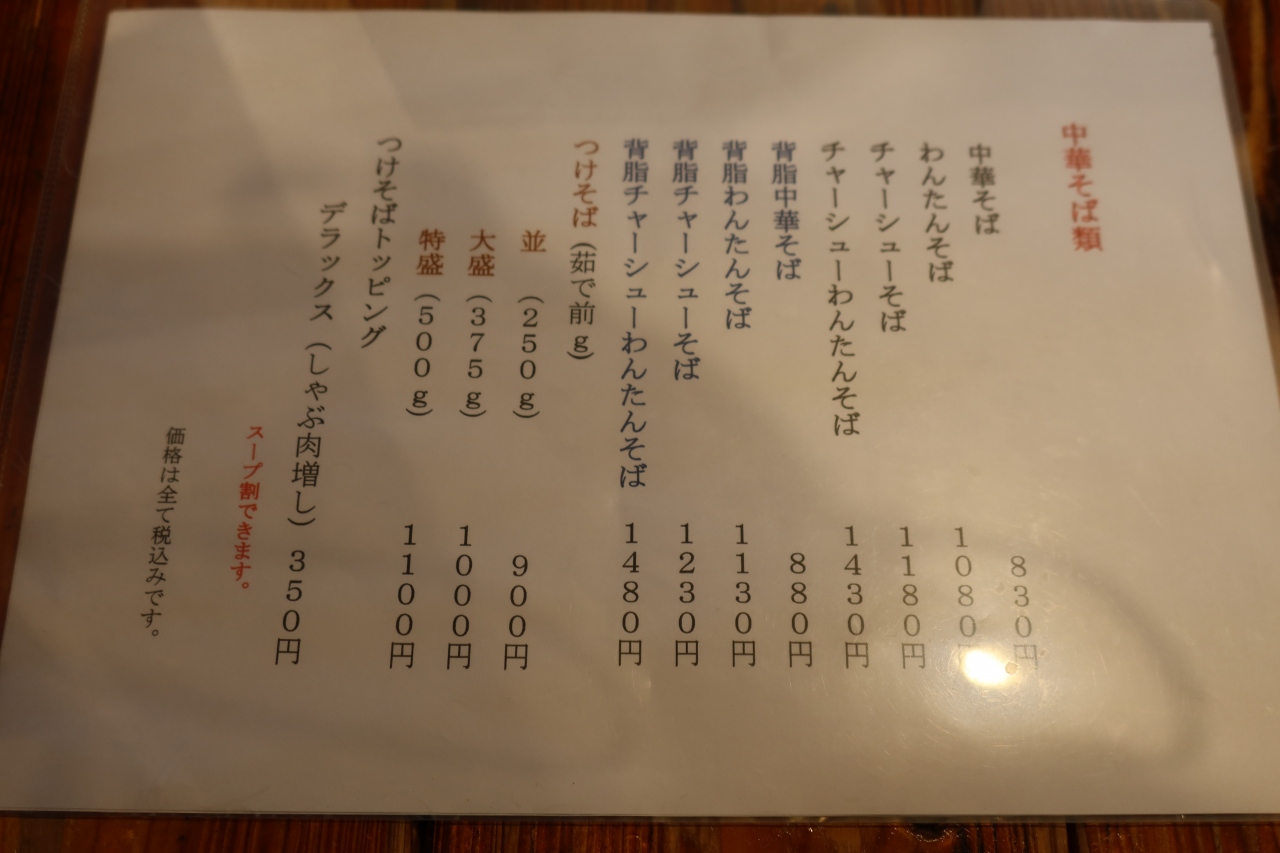 中華そば類
中華そば 830円
わんたんそば 1080円
チャーシューそば 1180円
チャーシューわんたんそば 1430円
背脂中華そば 880円
背脂わんたんそば 1130円
背脂チャーシューそば 1230円
背脂チャーシューわんたんそば 1480円
つけそば(茹で前g)
並 (250g) 900円
大盛(375g) 1000円
特盛(500g) 1100円
つけそばトッピング
デラックス(しゃぶ肉増し) 350円
スープ割できます。
価格は全て税込みです。